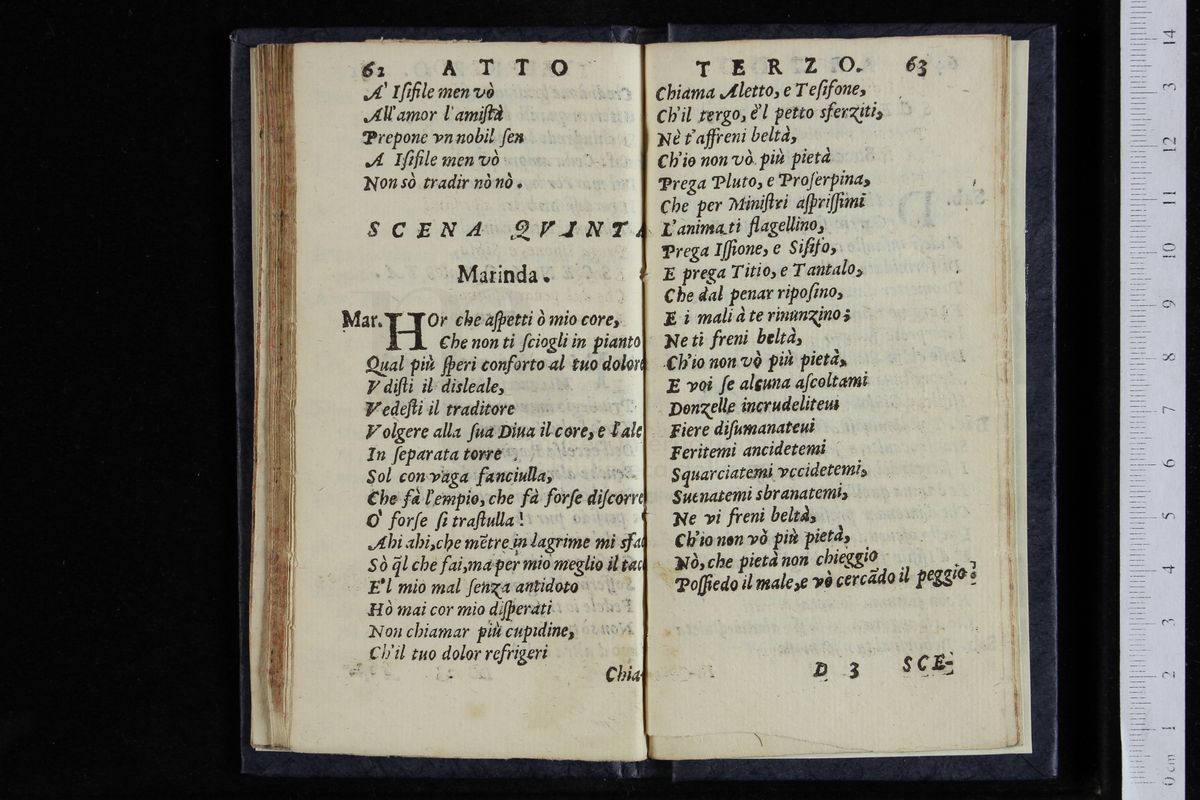 62 ATTO
A' Iſiſile men vò
All'amor l'amiſtà
Prepone vn nobil ſen
A Iſiſile men vò
Non sò tradir nò nò.
SCENA QVINTA
Marinda.
Mar. HOr che aſpetti ò mio core,
Che non ti ſciogli in pianto
Qual più ſperi conforto al tuo dolore
Vdiſti il disleale,
Vedeſti il traditore
Volgere alla ſua Diua il core, e l'ale
In ſeparata torre
Sol con vaga fanciulla,
Che fà l'empio, che fà forſe diſcorre
O' forſe ſi traſtulla!
Ahi ahi, che mētre in lagrime mi sfac
Sò q̃l che fai, ma per mio meglio il tacc
E'l mio mal ſenza antidoto
Hò mai cor mio diſperati
Non chiamar più cupidine,
Ch'il tuo dolor refrigeri
Chia-
TERZO. 63
Chiama Aletto, e Teſifone,
Ch'il tergo, è'l petto sferziti,
Nè t'affreni beltà,
Ch'io non vò più pietà
Prega Pluto, e Proſerpina,
Che per Miniſtri aſpriſſimi
L'anima ti flagellino,
Prega Iſſione, e Siſifo,
E prega Titio, e Tantalo,
Che dal penar ripoſino,
E i mali à te rinunzino;
Ne ti freni beltà,
Ch'io non vò più pietà,
E voi ſe alcuna aſcoltami
Donzelle incrudeliteui
Fiere diſumanateui
Feritemi ancidetemi
Squarciatemi vccidetemi,
Suenatemi sbranatemi,
Ne vi freni beltà,
Ch'io non vò più pietà,
Nò, che pietà non chieggio
Poſſiedo il male, e vò cercādo il peggio.
D 3 SCE-